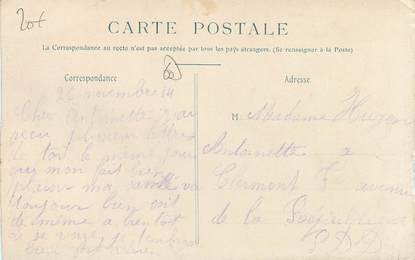 20f
CARTE POSTALE
La Correspondance au recto n'est pas acceptée par tous les pays étrangers. (Se renseigner à la Poste)
Correspondance
Adresse
26 novembre 14
Cher Antoinette j'ai
recu plusieur lettres
de toi le meme jour
qui mon fait bien
plaisir ma
toujour bien soit
de même a bientot
de se voir je
M. Madame Hugon
Antoinette a
Clermont Fd avenue
de la
P D D